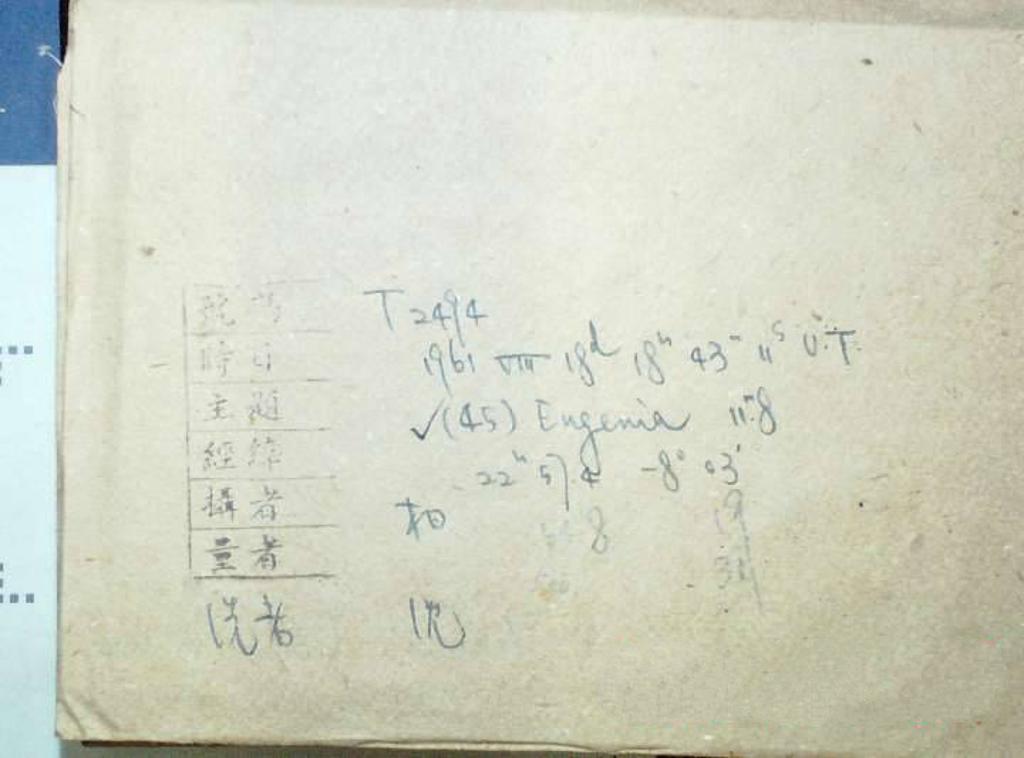 號片 T2494
時日 1961 VIII 18ᵈ 18ʰ 43ᵐ 11ˢ U.T.
主題 ✓(45) Eugenia 11ᵐ.8
經緯 22ʰ 57.4 -8° 03'
攝者 柏
量者
洗者 沈